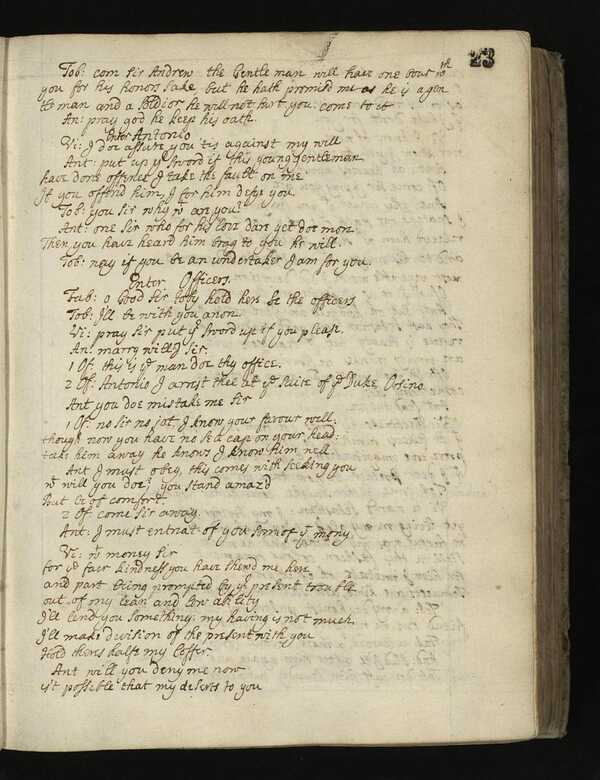 23
Tob: com Sir Andrew the Gentle man will have one bout wth
you for his honors sake but he hath promisd me as he is a gen
tle man and a soldior he will not hurt you come to it
An: pray god he keep his oath.
Enter Antonio
Vi: I doe assure you 'tis against my will
Ant: put up yr sword if this young gentleman
have done offence I take the fault on me
If you offend him, I for him defye you
Tob: you Sir why wt are you?
Ant: one Sir who for his love dare yet doe more
Then you have heard him brag to you he will.
Tob: nay if you be an undertaker I am for you.
Enter Officers.
Fab: o Good Sir toby hold here be the officers
Tob: I'll be with you anon
Vi: pray Sir put yr sword up if you please
An: marry will I Sir.
1 Of: this is ye man doe thy office.
2 Of: Antonio I arrest thee at ye suite of ye Duke Orsino
Ant you doe mistake me Sir
1 Of: no Sir no jot, I know your favour well:
though now you have no sea cap on your head:
take him away he knows I know him well
Ant I must obey, this comes with seeking you
wt will you doe? you stand amazd
But be of comfort.
2 Of: come Sir away.
Ant: I must entreat of you some of yt mony
Vi: wt money Sir
for ye fair kindness you have shewd me here
and part being prompted by yr present trouble
out of my lean and low ability
I'll lend you something: my having is not much
I'll make division of the present with you
Hold theres halfe my Coffer
Ant will you deny me now
is't possible that my deserts to you